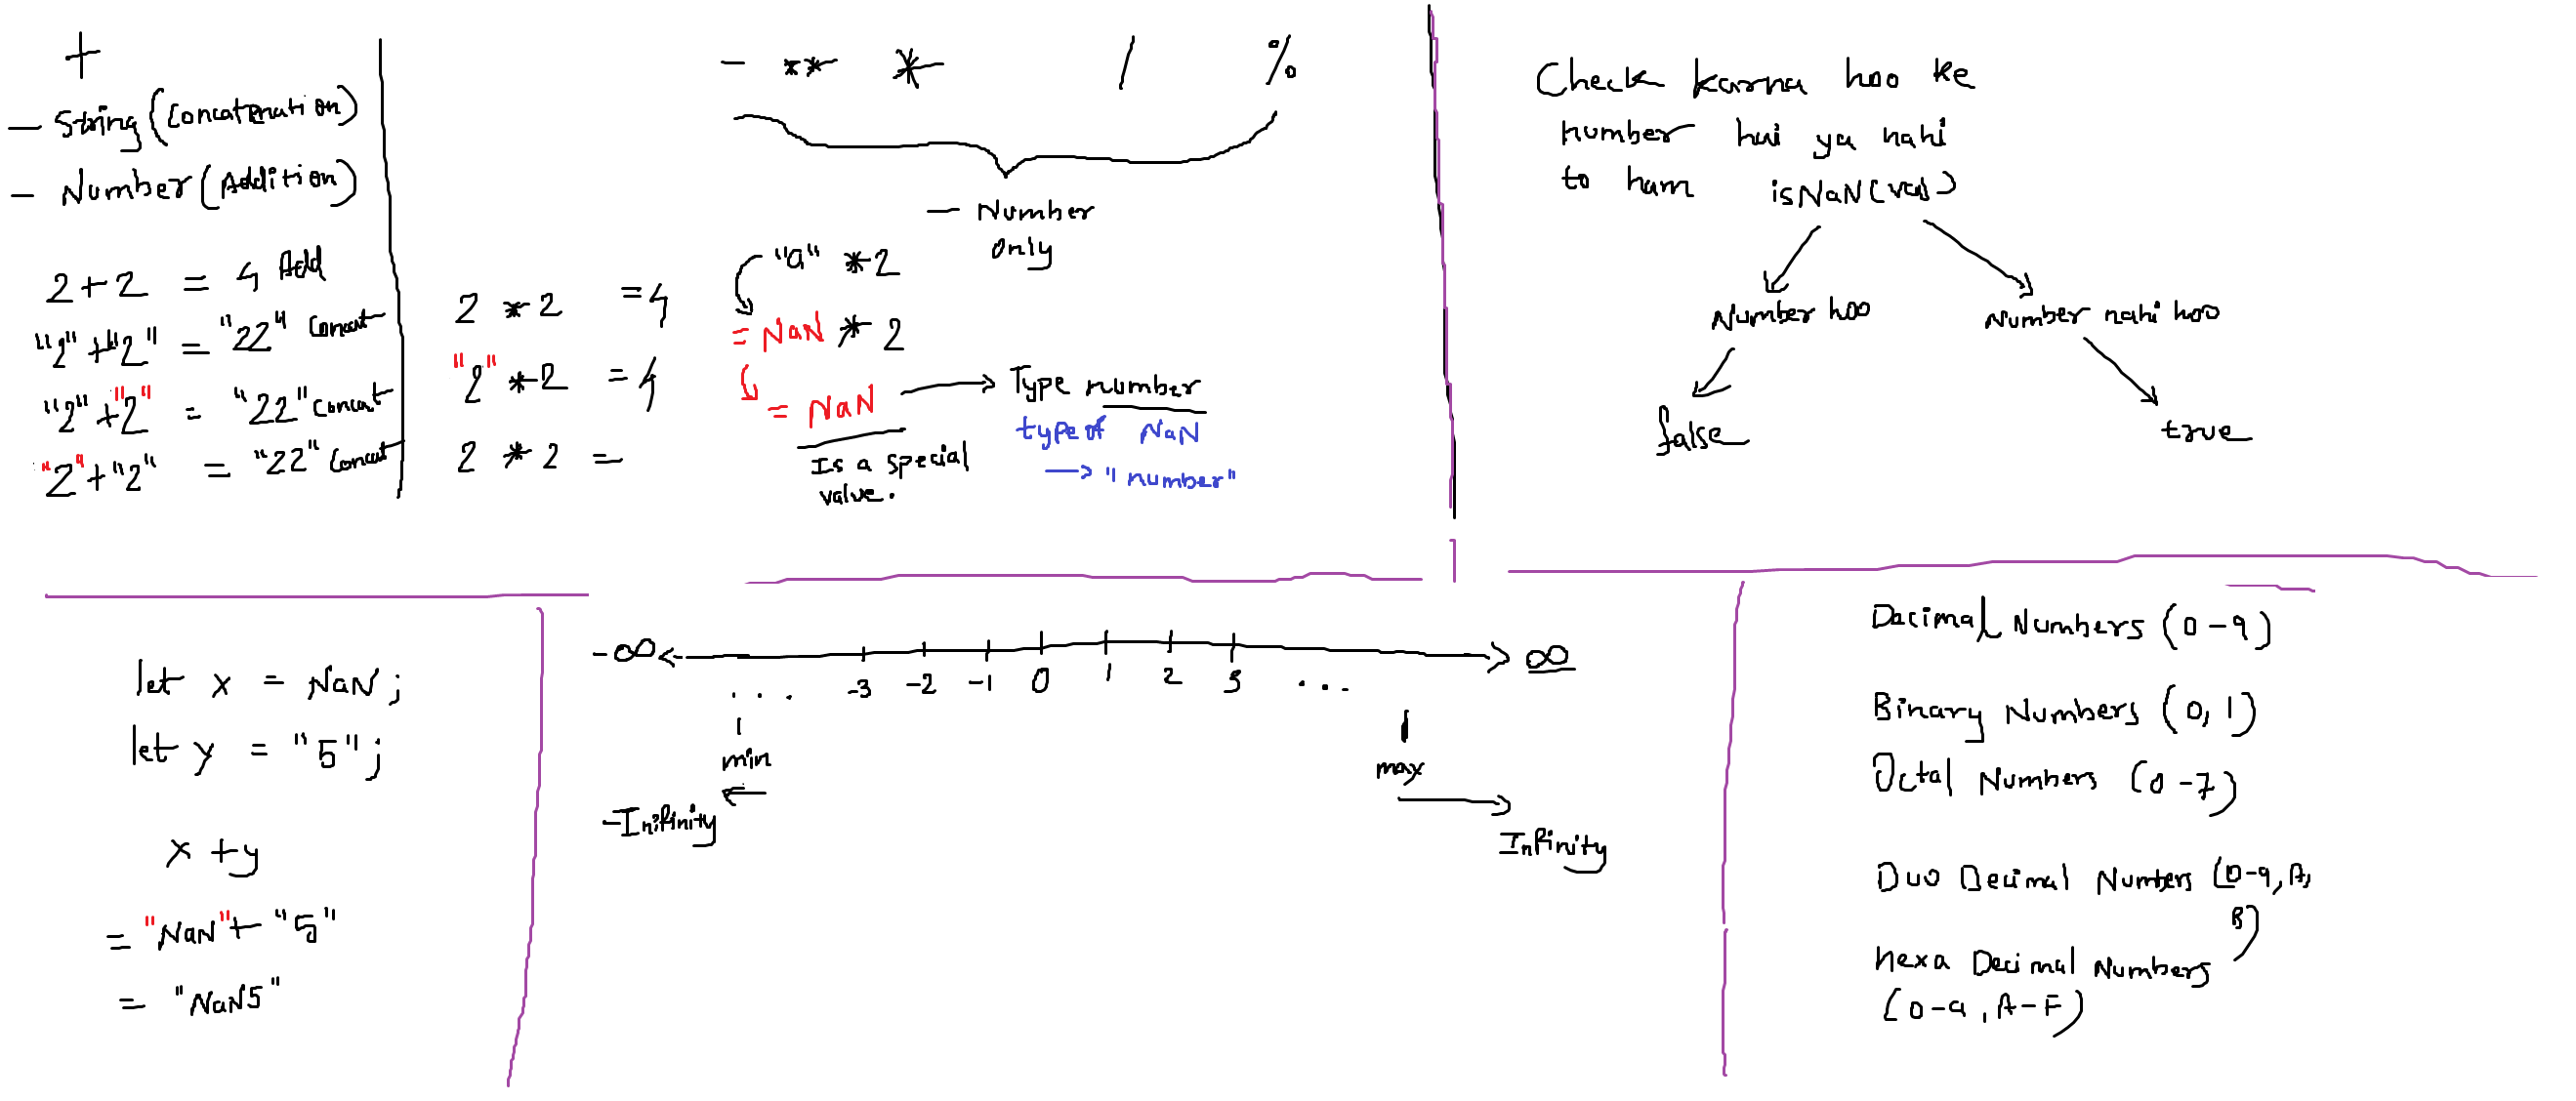 +
- String (Concatenation)
- Number (Addition)
2+2 = 4 Add
"2"+"2" = "22" Concat
"2"+"2" = "22" Concat
"2"+"2" = "22" Concat
- ** * / %
- Number
only
2 *2 =4
"2" *2 =4
2 *2 =
"a" *2
= NaN * 2
= NaN
Is a special
value.
Type number
typeof NaN
→ "number"
Check karna hoo ke
number hai ya nahi
to ham isNaN(val)
Number hoo
Number nahi hoo
false
true
let x = NaN;
let y = "5";
x +y
= "NaN"+ "5"
= "NaN5"
-∞ ∞
. . . -3 -2 -1 0 1 2 3 . . .
min
max
-Infinity
Infinity
Decimal Numbers (0-9)
Binary Numbers (0,1)
Octal Numbers (0-7)
Duo Decimal Numbers (0-9, A,
B)
Hexa Decimal Numbers
(0-9, A-F)